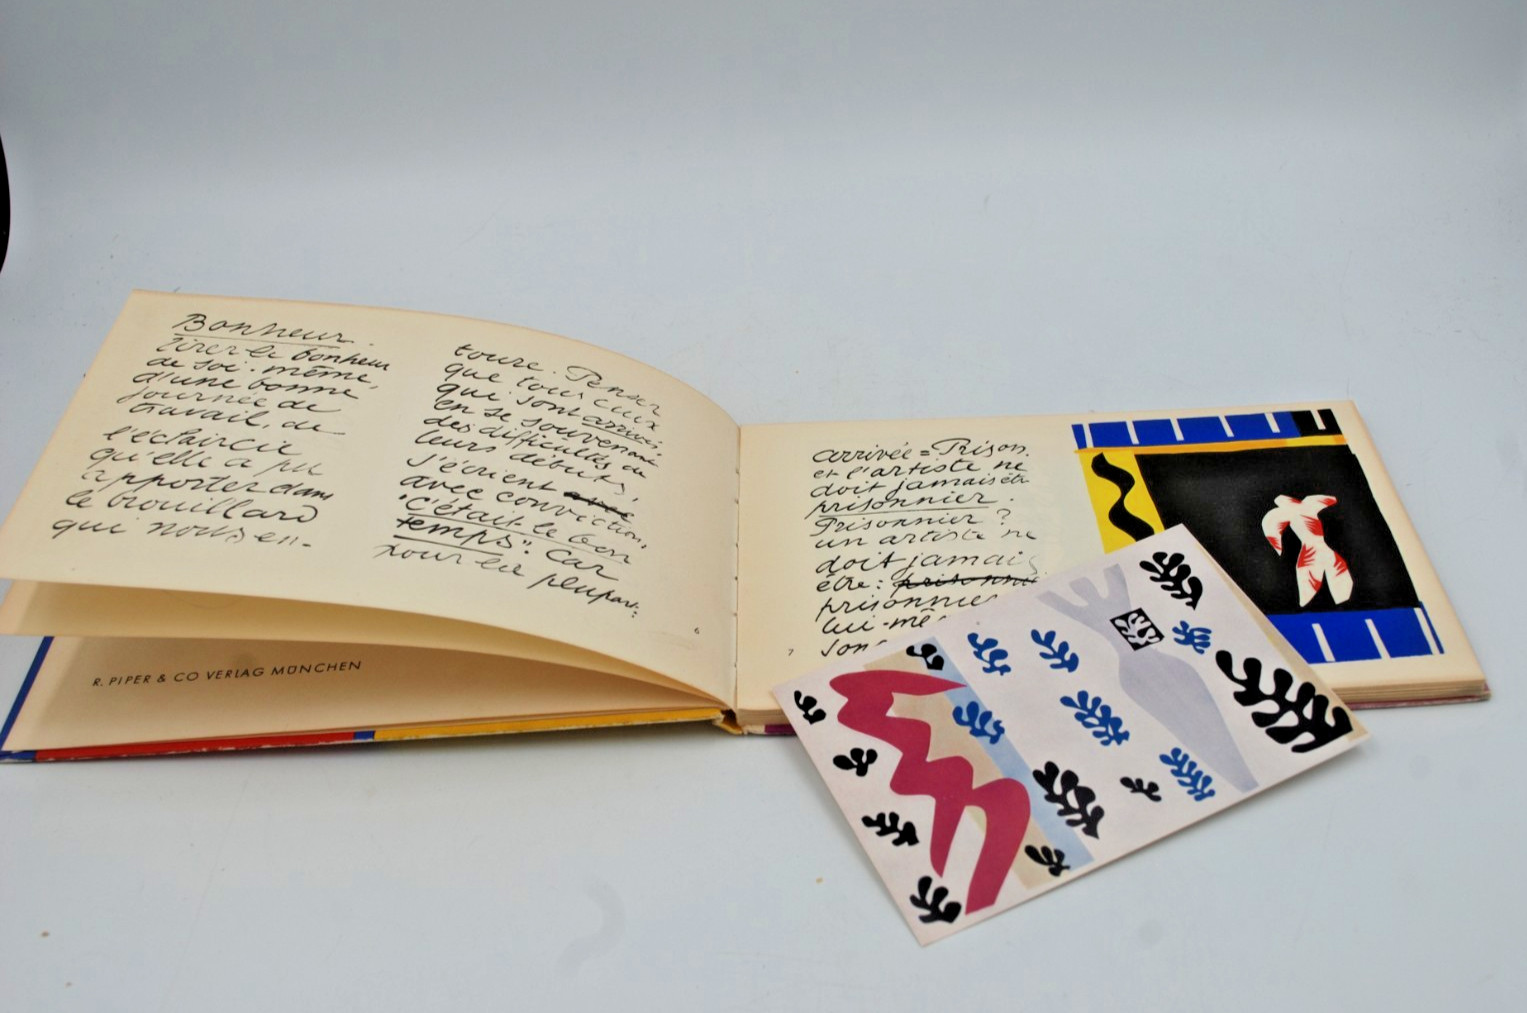 Bonheur.
Tirer le bonheur
de soi-même,
d'une bonne
journée de
travail, de
l'éclaircie
qu'elle a pu
apporter dans
le brouillard
qui nous en-
toure. Penser
que tous ceux
qui sont arrivés,
en se souvenant
des difficultés de
leurs débuts,
s'écrient avec
avec conviction,
"C'était le bon
temps". Car
pour la plupart:
6
R. PIPER & CO VERLAG MÜNCHEN
arrivée = Prison.
et l'artiste ne
doit jamais être
prisonnier.
Prisonnier ?
un artiste ne
doit jamais
être: prisonnier
prisonnier
lui-mê
son
7